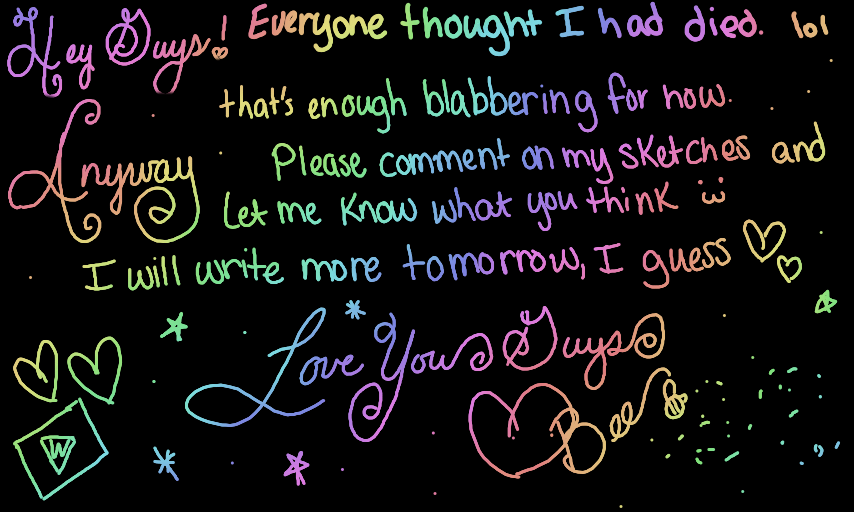 Hey Guys! Everyone thought I had died. lol
that's enough blabbering for now.
Anyway Please comment on my sketches and
let me know what you think :3
I will write more tomorrow, I guess
Love You Guys
Bee
W